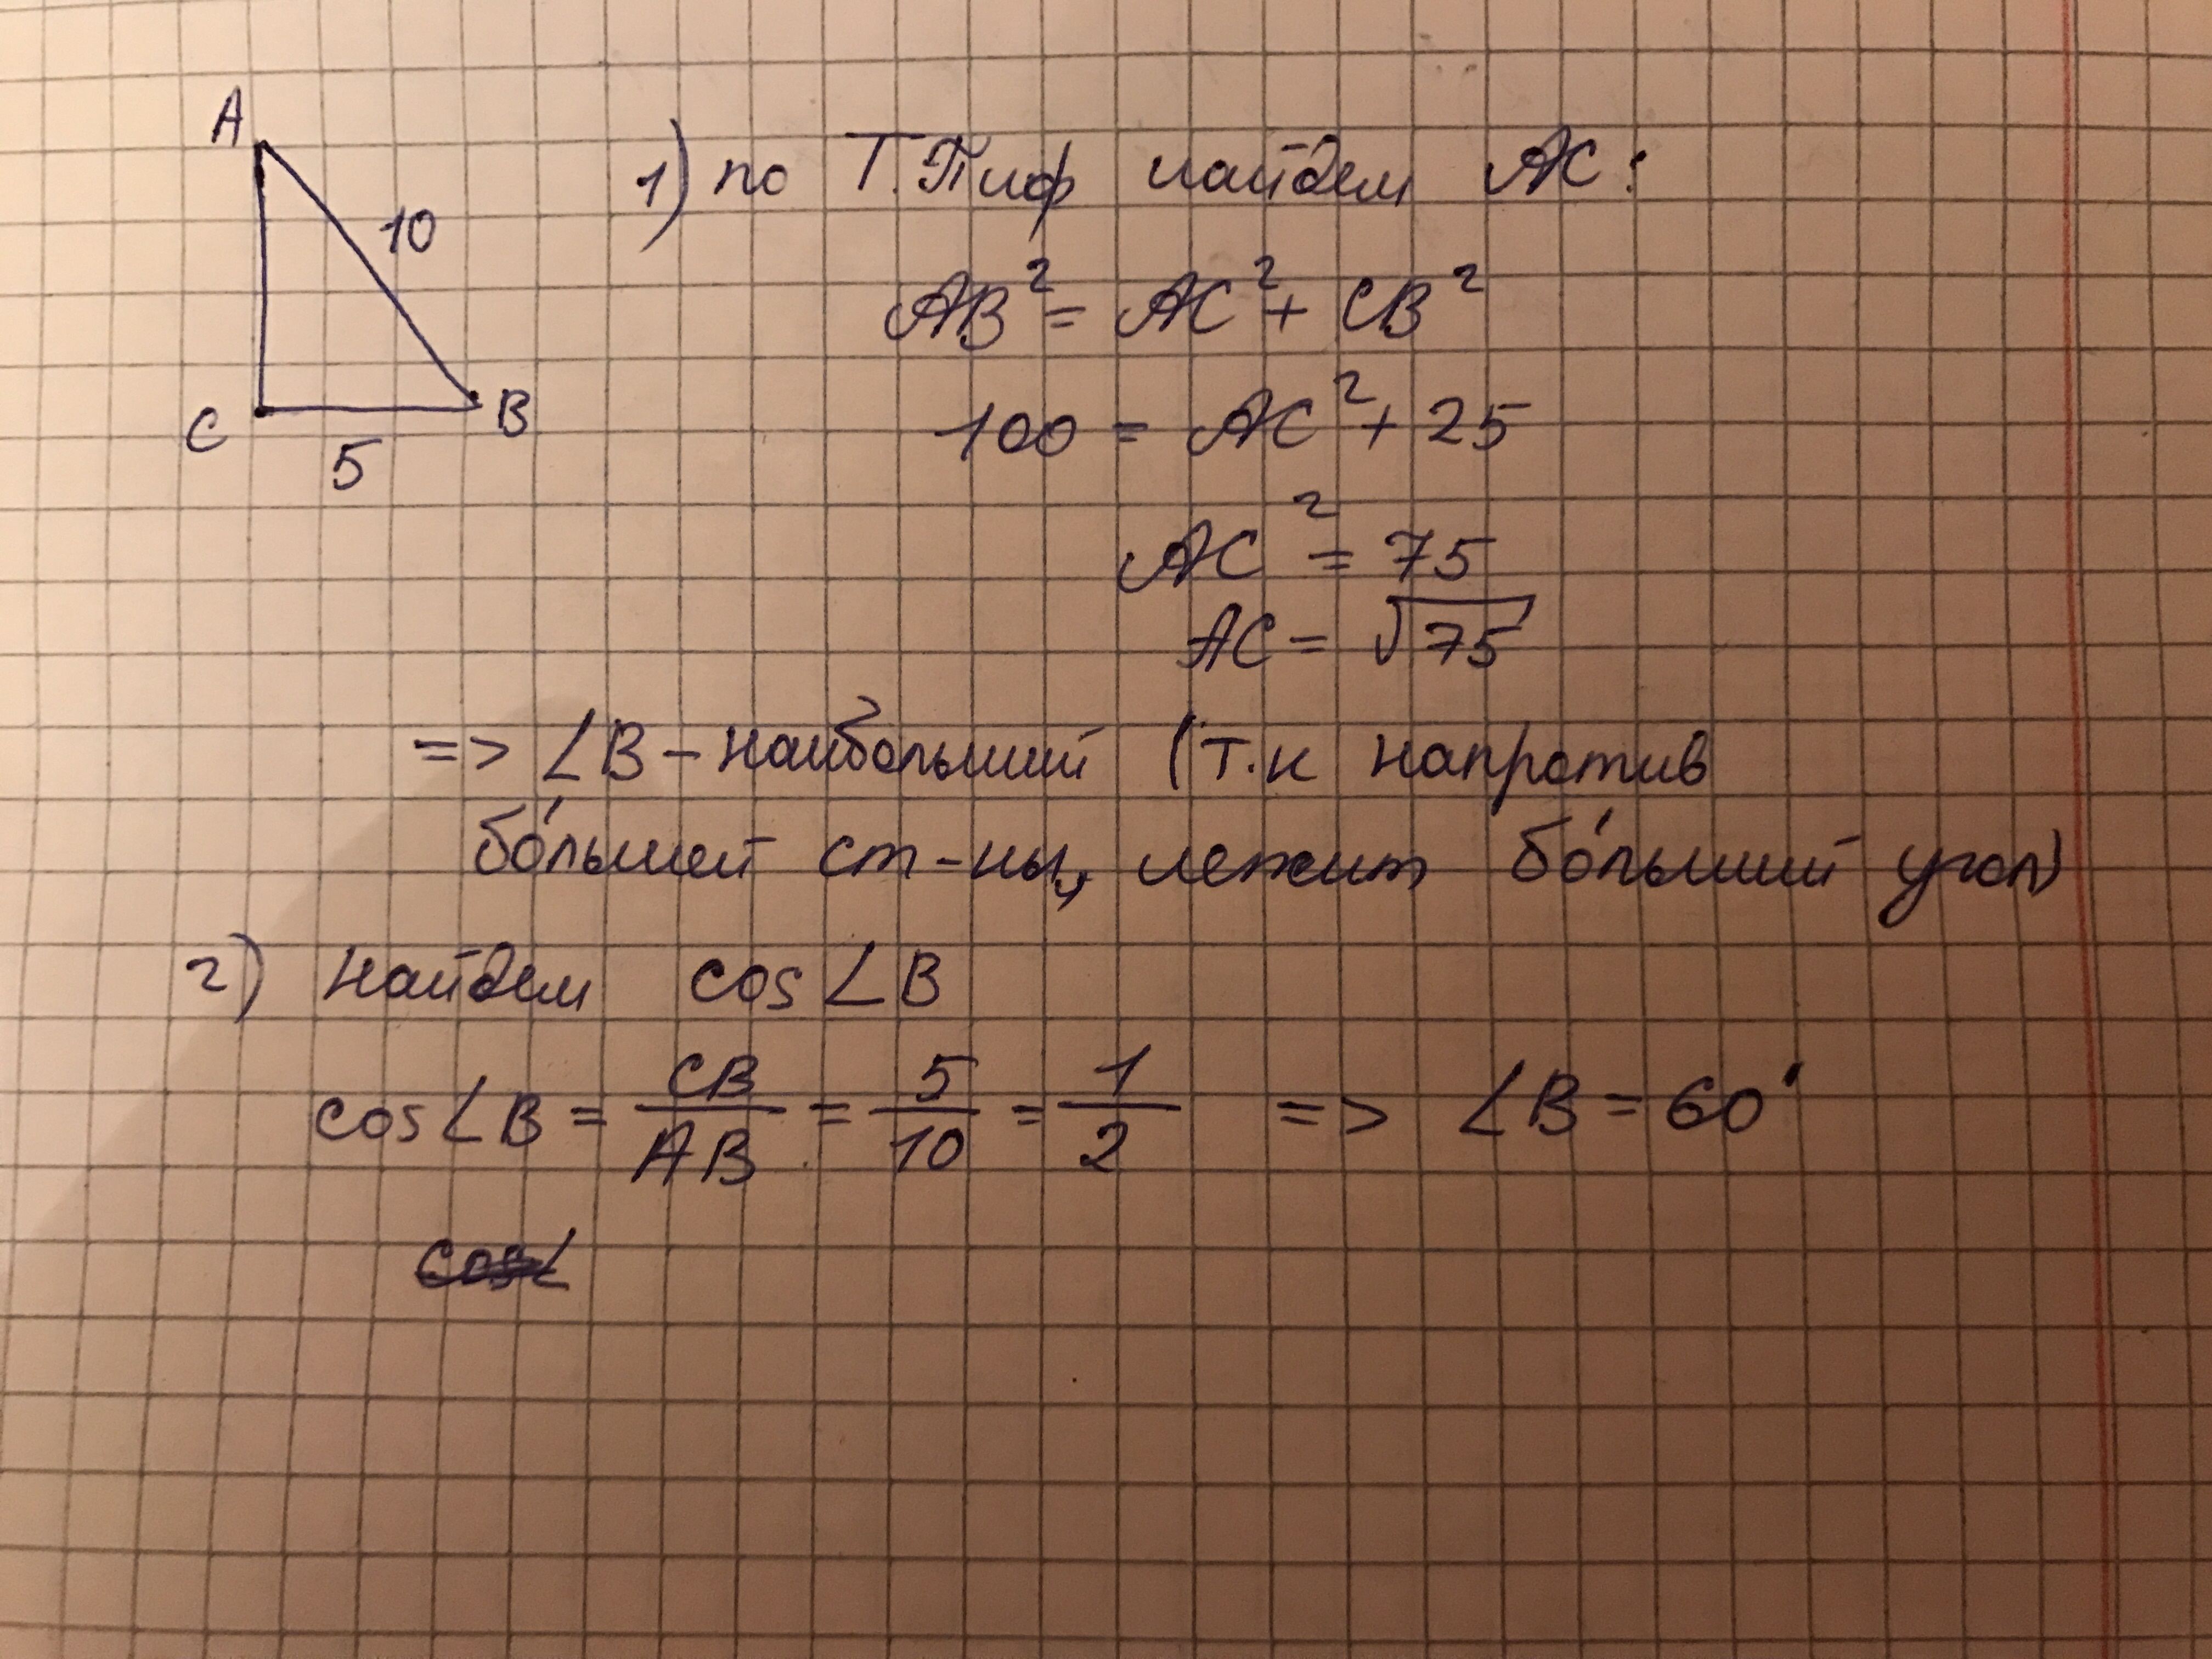 A
10
C
B
5
1) по Т.Пиф найдем AC:
AB² = AC² + CB²
100 = AC² + 25
AC² = 75
AC = √75
=> ∠B - наибольший (т.к напротив
бо́льшей ст-ны, лежит бо́льший угол)
2) найдем cos∠B
cos∠B = CB/AB = 5/10 = 1/2 => ∠B = 60°
cos∠